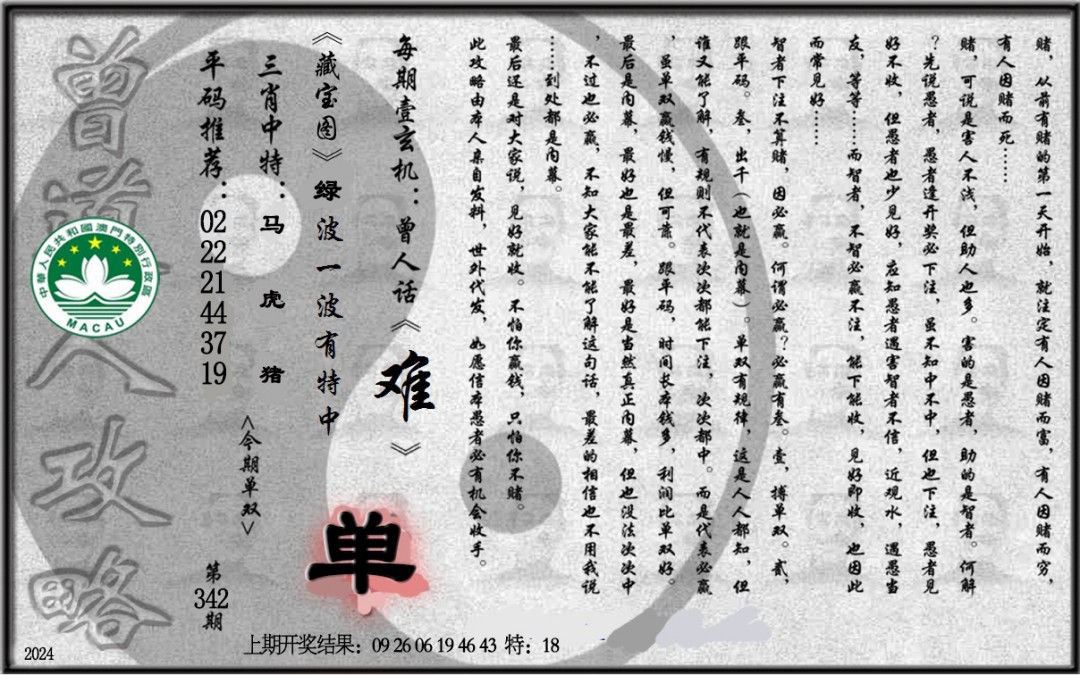 赌，从前有赌的第一天开始，就注定有人因赌而富，有人因赌而穷，
有人因赌而死……
赌，可说是害人不浅，但助人也多。害的是愚者，助的是智者。何解
？先说愚者，愚者逢开奖必下注，虽不知中不中，但也下注，愚者见
好不收，但愚者也少见好，应知愚者遇害智者不信，近观水，遇愚当
友，等等……而智者，不智必赢不注，能下能收，见好即收，也因此
而常见好……
智者下注不算赌，因必赢。何谓必赢？必赢有叁。壹，搏单双。贰，
跟平码。叁，出千（也就是内幕）。单双有规律，这是人人都知，但
谁又能了解，有规则不代表次次都能下注，次次都中。而是代表必赢
，虽单双赢钱慢，但可靠。跟平码，时间长本钱多，利润比单双好。
最后是内幕，最好也是最差，最好是当然真正内幕，但也没法次次中
，不过也必赢，不知大家能不能了解这句话，最差的相信也不用我说
……到处都是内幕。
最后还是对大家说，见好就收。不怕你赢钱，只怕你不赌。
此攻略由本人亲自发料，世外代发，如愿信本愚者必有机会收手。
每期壹玄机：曾人话《难》
《藏宝图》绿波一波有特中
三肖中特：马 虎 猪
平码推荐：02 22 21 44 37 19
<今期单双>
单
第342期
曾道人攻略
中華人民共和國澳門特別行政區
MACAU
上期开奖结果：09 26 06 19 46 43 特：18
2024